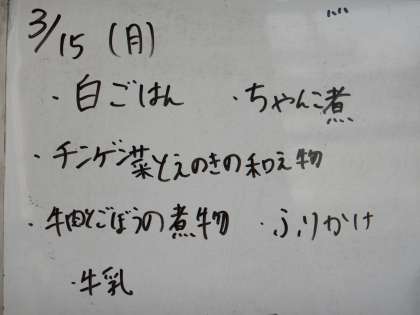 3/15（月）
・白ごはん ・ちゃんこ煮
・チンゲン菜とえのきの和え物
・牛肉とごぼうの煮物 ・ふりかけ
・牛乳